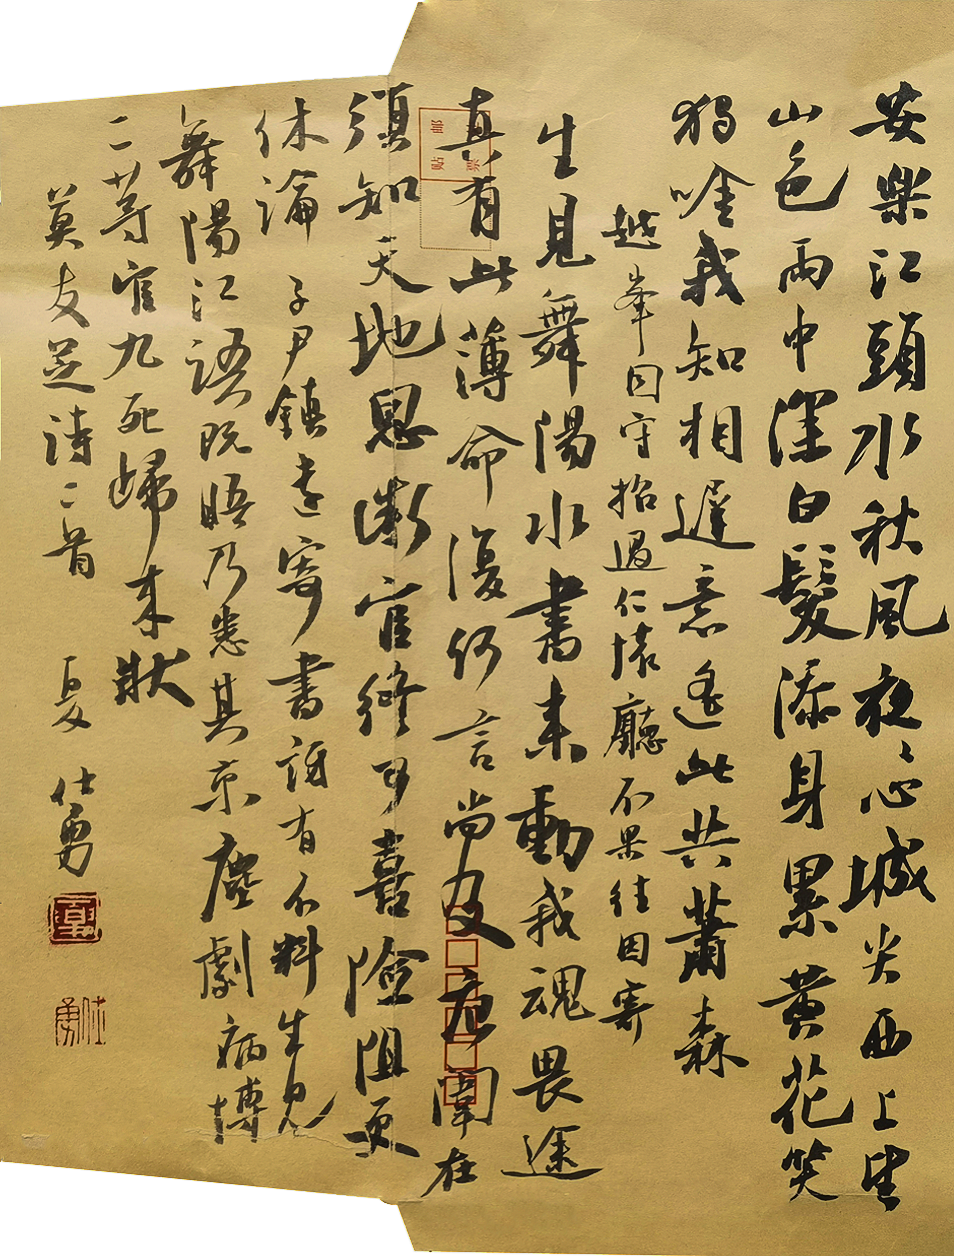 安樂江頭水秋風夜心城尖西上望
山色雨中深白髮添身累黃花笑
獨唫我知相遲意遙此共蕭森
越峯因守招過仁懷廳不果往因寄
生見舞陽水書來動我魂畏途
真有此薄命復何言尚及 闈在
須知天地恩微官終可喜險阻更
休論 子尹鎮遠寄書訝有不料生見
舞陽江語既晤乃悉其京塵劇病博
二等官九死歸來狀
莫友芝詩二首 夏仕勇